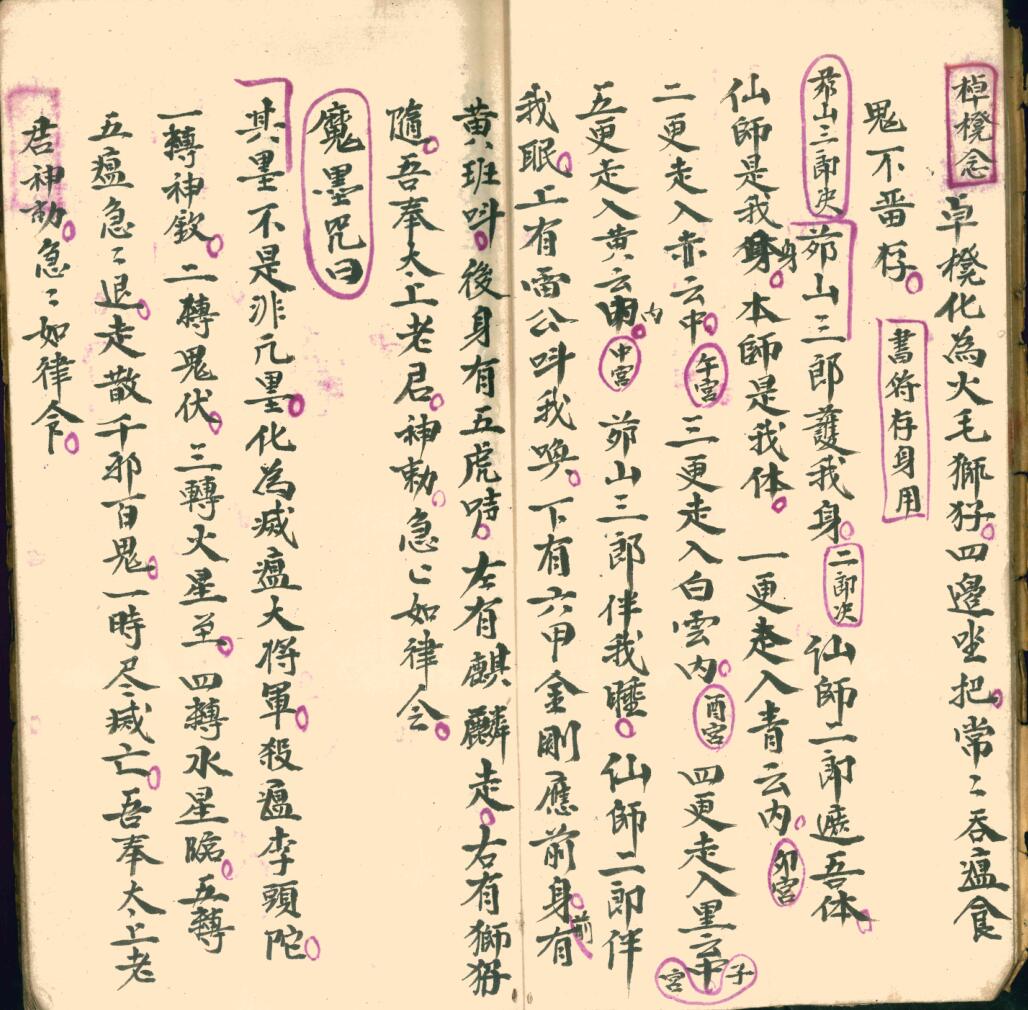 棹櫈念 卓櫈化為火毛獅犭子。四邊坐把。常〻吞瘟食
鬼不畨存。 書符存身用
茆山三郎决 茆山三郎護我身。二郎决 仙師二郎遮吾体。
仙師是我身。本師是我体。一更走入青云内。卯宮
二更走入赤云中。午宮 三更走入白雲内。酉宮 四更走入黑云中 子宮
五更走入黄云内。中宮 茆山三郎伴我睡。仙師二郎伴
我眠。上有雷公呌我喚。下有六甲金剛應前身。前有
黄班呌。後身有五虎啼。左有麒麟走。右有獅
隨。吾奉太上老君。神勅。急〻如律令。
魔墨咒曰
其墨不是非凡墨。化為滅瘟大將軍。殺瘟李頭陀。
一轉神欽。二轉鬼伏。三轉火星至。四轉水星臨。五轉
五瘟急〻退。走散千邪百鬼。一時尽滅亡。吾奉太上老
君神勅。急〻如律令。